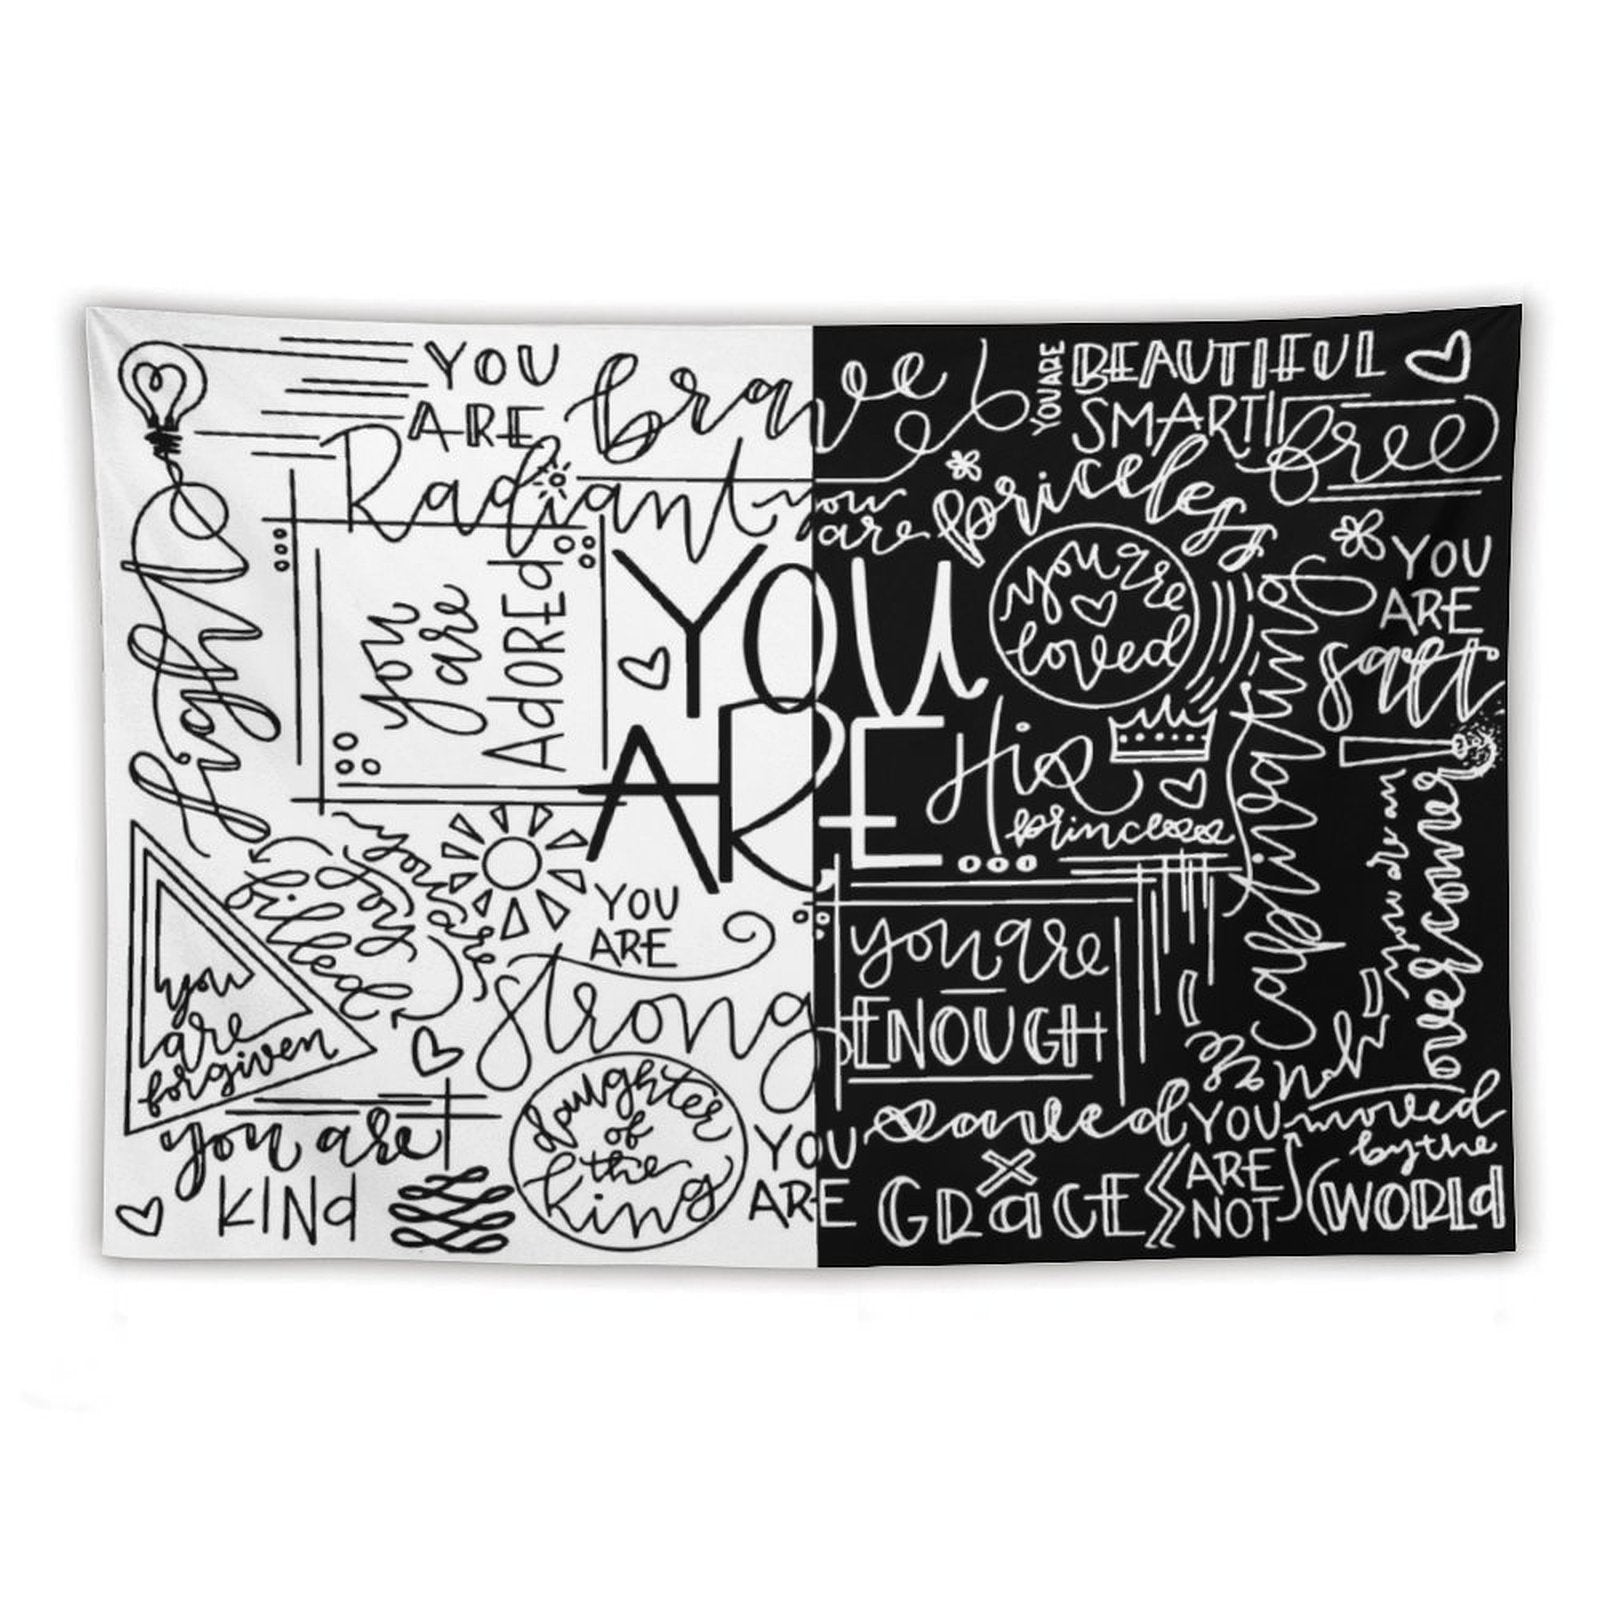 YOU
ARE
brave
Radiant
YOU ARE
BEAUTIFUL
SMART
free
you
are priceless
light
you
are
AdOREd
YOU
ARE
you are
loved
His
princess
YOU
ARE
salt
captivating
you are an
overcomer
you are
joy
filled
you
are
forgiven
YOU
ARE
strong
you are
ENOUGH
you are
KINd
daughter
of
the
king
YOU
ARE
saved
x
GRaCE
YOU
ARE
NOT
moved
by the
WORLd